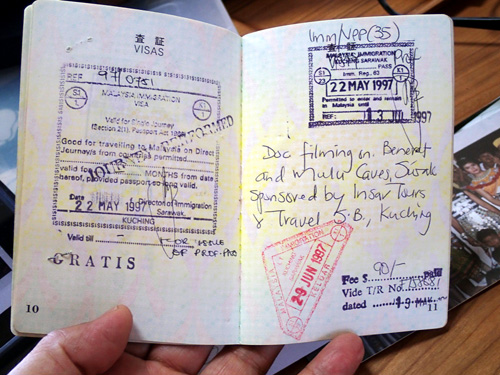 査 証
VISAS
REF
MALAYSIA IMMIGRATION
VISA
Valid for Single Journey
(Section 2(1), Passport Act 1966)
Good for travelling to Malaysia on Direct
Journeys from countries permitted
valid for MONTHS from date
hereof, provided passport so long valid.
Date 22 MAY 1997 Director of Immigration
Sarawak.
KUCHING
Valid till -
GRATIS
10
Imm/VPP(35)
MALAYSIA - IMMIGRATION
KUCHING SARAWAK
PASS
Imm. Reg. 63
22 MAY 1997
Permitted to enter and remain
in Malaysia until
REF: 13 JUL 1997
Doc filming on
and Mulu Caves, S'wak
sponsored by Insar Tours
& Travel S.B., Kuching
MALAYSIA
29 JUN 1997
KELUAR
Fee $ 90/- paid
Vide T/R No.
dated 19 MAY
11